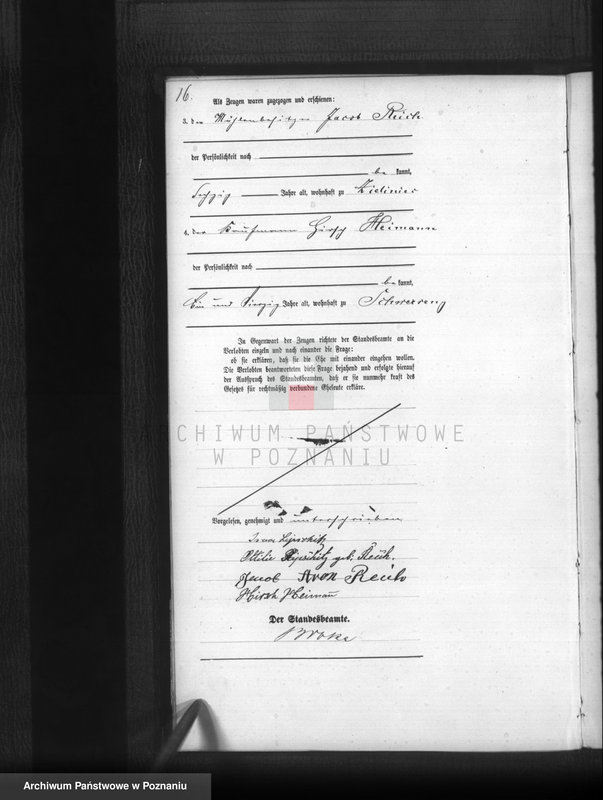 16.
Als Zeugen waren zugezogen und erschienen:
3. der Mühlenbesitzer Jacob Reich
der Persönlichkeit nach
be kannt,
sechzig Jahre alt, wohnhaft zu Zieliniec
4. der Kaufmann Hirsch Heimann
der Persönlichkeit nach
be kannt,
Ein und vierzig Jahre alt, wohnhaft zu Schwersenz
In Gegenwart der Zeugen richtete der Standesbeamte an die
Verlobten einzeln und nach einander die Frage:
ob sie erklären, daß sie die Ehe mit einander eingehen wollen.
Die Verlobten beantworteten diese Frage bejahend und erfolgte hierauf
der Ausspruch des Standesbeamten, daß er sie nunmehr kraft des
Gesetzes für rechtmäßig verbundene Eheleute erkläre.
ARCHIWUM PAŃSTWOWE
W POZNANIU
Vorgelesen, genehmigt und unterschrieben
Lipschitz
Ottilie Lipschitz geb. Reich.
Jacob Aron Reich
Hirsch Heimann
Der Standesbeamte.
Archiwum Państwowe w Poznaniu